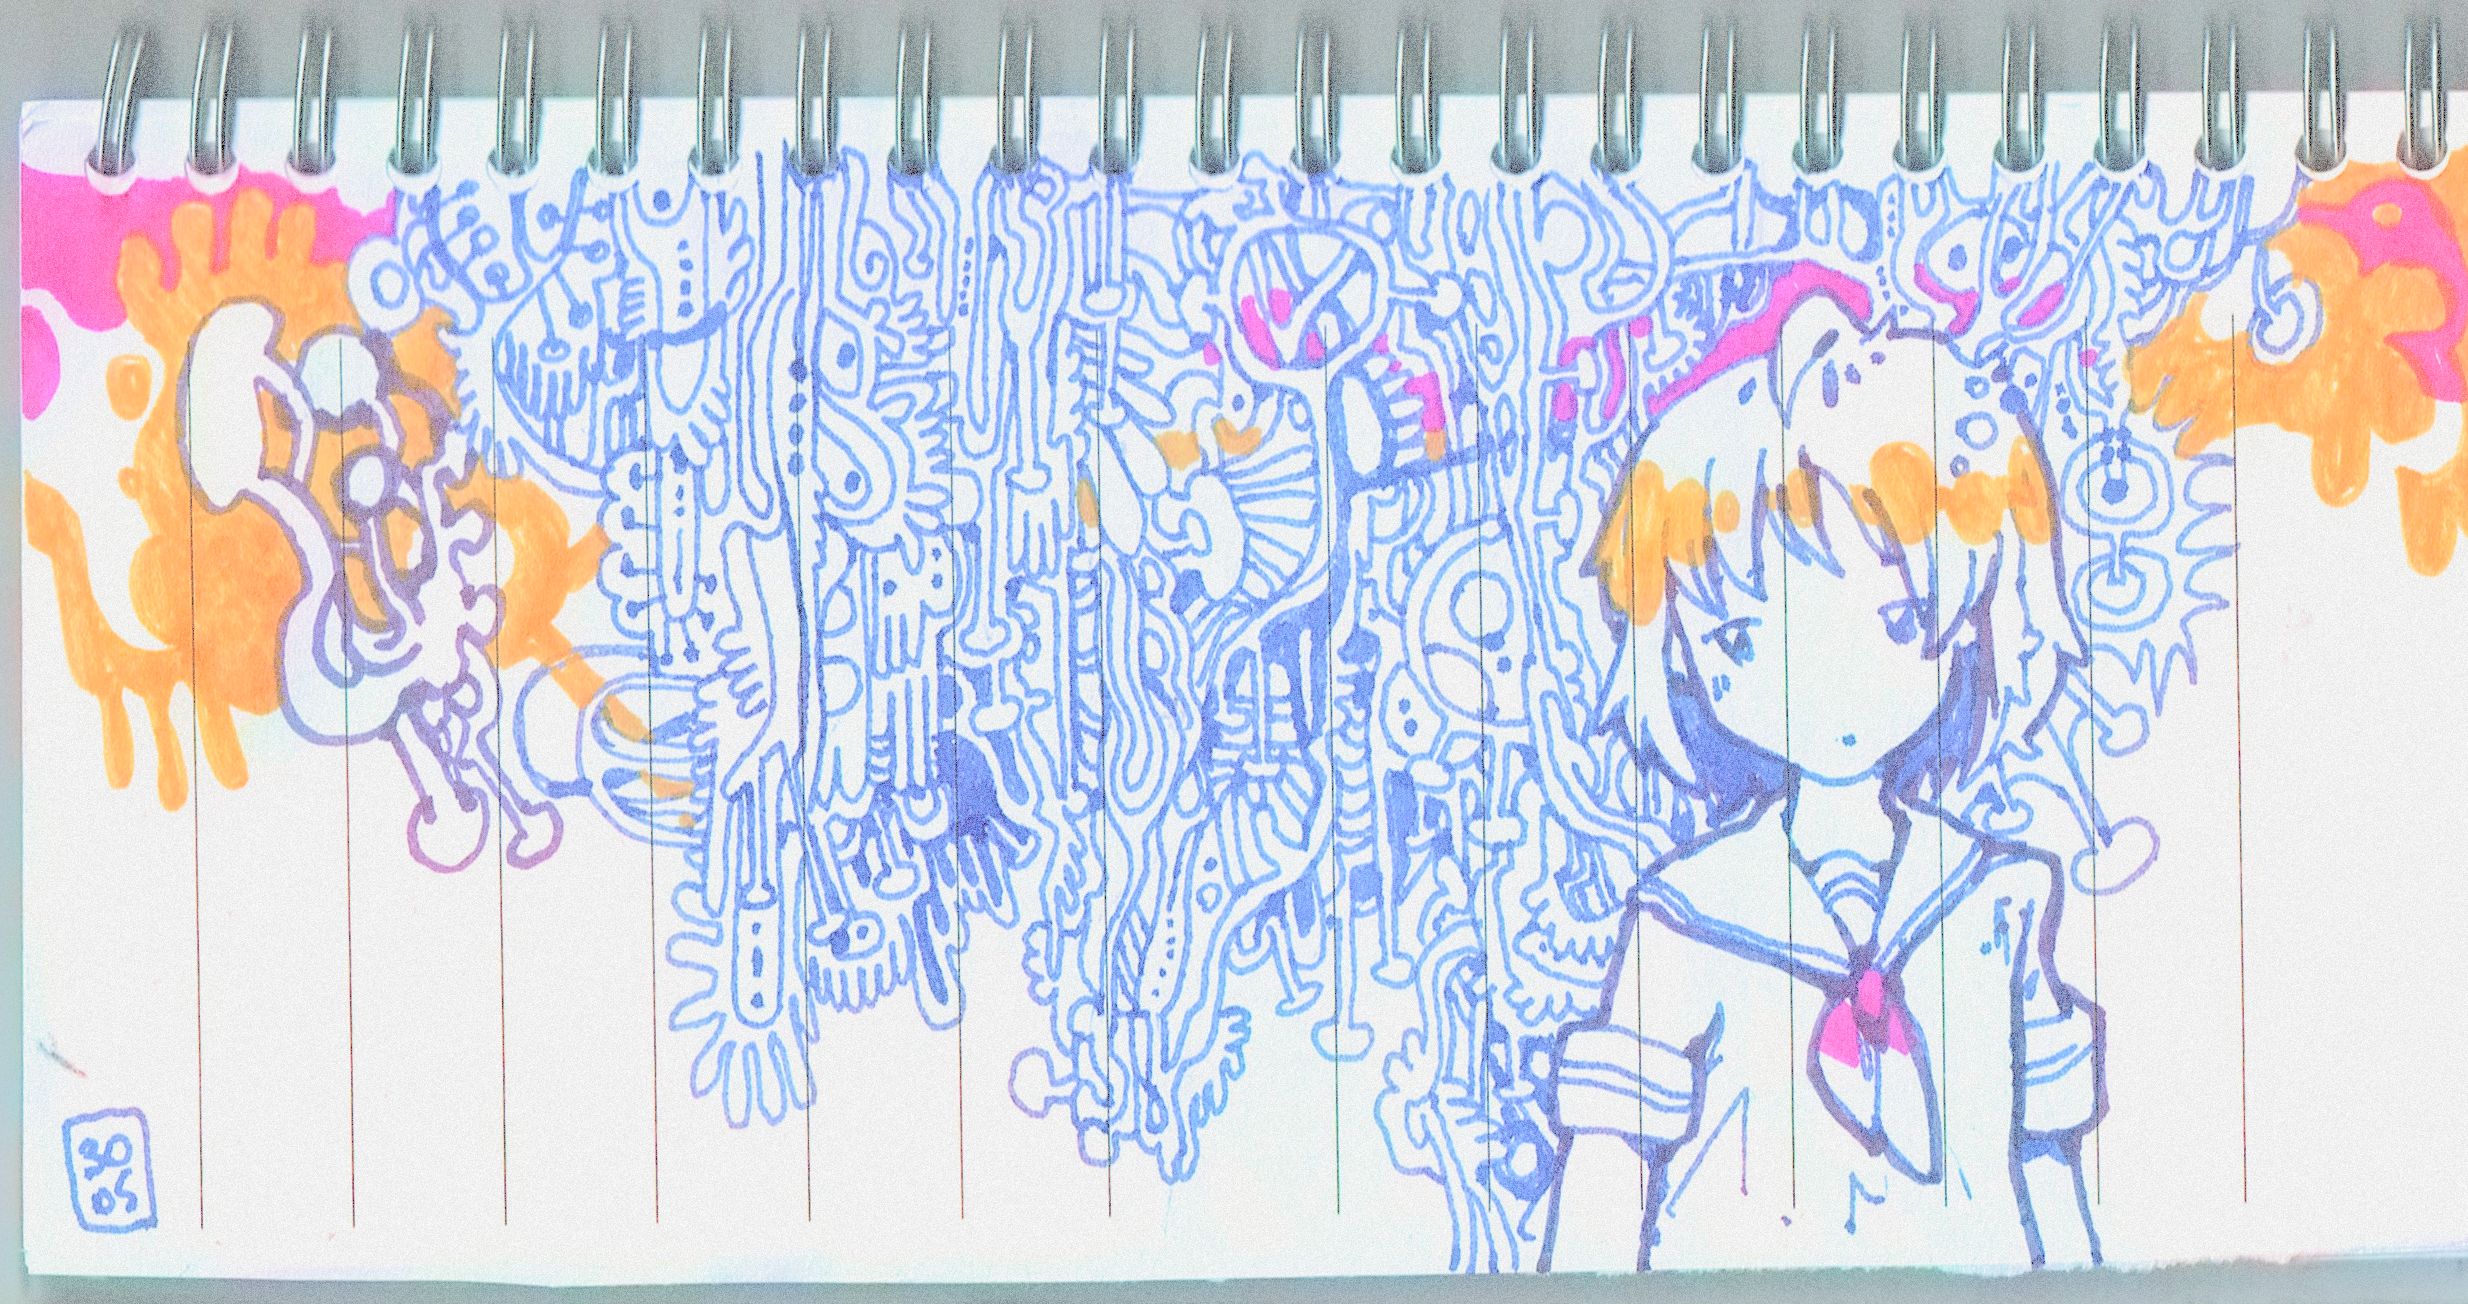 30
05